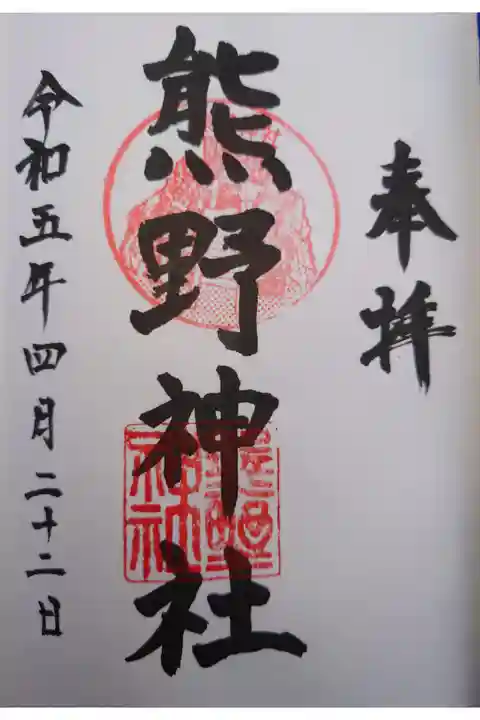 奉拝
熊野神社
令和五年四月二十二日